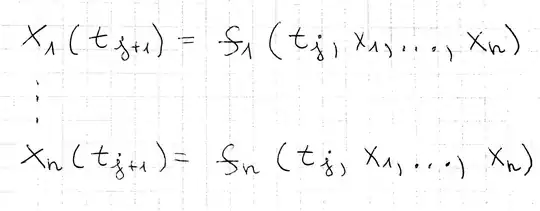 x₁(t_{j+1}) = f₁(t_j, x₁, ..., xₙ)
⋮
xₙ(t_{j+1}) = fₙ(t_j, x₁, ..., xₙ)